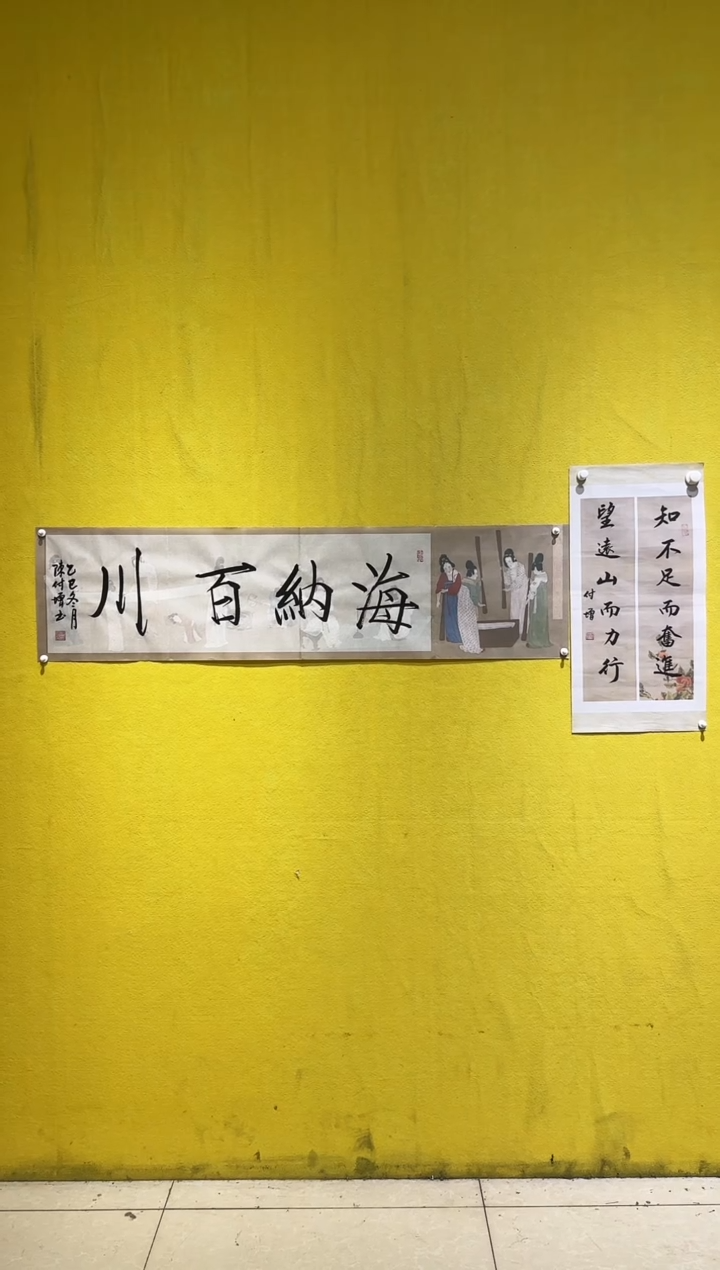 海納百川
乙巳冬月
陈付增书
知不足而奮進
望遠山而力行
付增